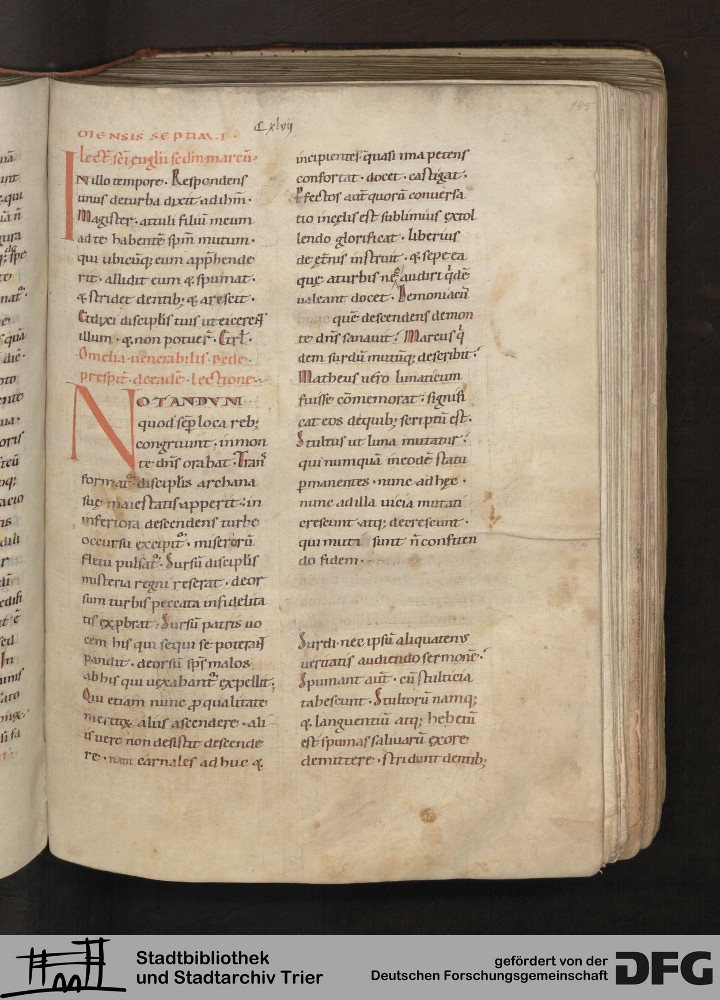 Cxlvij
145
OIENSIS SEPTIMI.
Lect̄. sc̄i euglīi scdm̄ marcū.
IN illo tempore. Respondens
unus deturba dixit adihm̄.
Magister. attuli filiū meum
ad te habentē spm̄ mutum.
qui ubicūq; eum appħende
rit. allidit eum & spumat.
& stridet dentib; & arescit.
Et dixi discipl̄is tuis ut eicerent
illum. & non potuer̄.
Omelia uenerabilis bede
presbit̄. deeadē lectione.
NOTANDVM
quod sēp loca reb;
congruunt. in mon
te dn̄s orabat. Tranſ
format̄. discipl̄is archana
sue maiestatis apperit. in
inferiora descendens turbe
occursu excipit̄. miserorū
fletu pulsat̄. Sursū discipl̄is
misteria regni reserat. deor
sum turbis peccata infidelita
tis exp̄brat. Sursū patris uo
cem his qui sequi se poterant
pandit. deorsū sp̄s malos
ab his qui uexabant̄ expellit;
Qui etiam nunc p̄ qualitate
meritoꝝ aliis ascendere. ali
is uero non desistit descende
re. nam carnales ad huc &
incipientes quasi ima petens
confortat. docet. castigat.
ꝑfectos aut̄ quorū conuersa
tio in cęlis est sublimius extol
lendo glorificat. liberius
de et̄nis instruit. & sepe ea
que aturbis nec audiri q̄dē
ualeant docet. Demoniacū
quē descendens demon
te dn̄s sanauit. Marcus q̄
dem surdū mutūq; describit.
Matheus uero lunaticum
fuisse cōmemorat. signifi
cat eos dequib; scriptū est.
Stultus ut luna mutatur.
qui numquā ineodē statu
ꝑmanentes. nunc ad hęc.
nunc ad illa uicia mutati
crescunt. atq; decrescunt.
qui muti sunt n̄ confiten
do fidem.
Surdi. nec ipsū aliquatenus
ueritatis audiendo sermonē.
Spumant aut̄. cū stulticia
tabescunt. Stultorū namq;
& languentiū atq; hebetū
est spumas saliuarū ex ore
demittere. stridunt dentib;
Stadtbibliothek
und Stadtarchiv Trier
gefördert von der
Deutschen Forschungsgemeinschaft
DFG